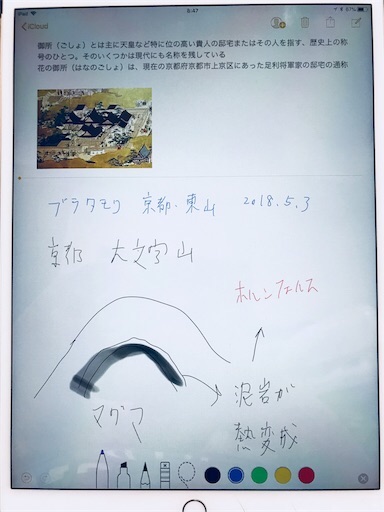 iPad
8:47
57%
iCloud
御所（ごしょ）とは主に天皇など特に位の高い貴人の邸宅またはその人を指す、歴史上の称
号のひとつ。そのいくつかは現代にも名称を残している
花の御所（はなのごしょ）は、現在の京都府京都市上京区にあった足利将軍家の邸宅の通称
ブラタモリ 京都・東山 2018.5.3
京都 大文字山
ホルンフェルス
マグマ
泥岩が
熱変成